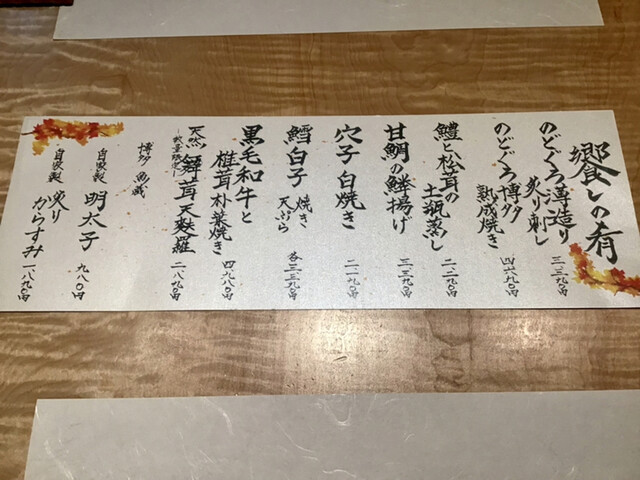 饗しの肴
のどぐろ薄造り
炙り刺し
三、三九〇円
のどぐろ博多
熟成焼き
四、六九〇円
鱧と松茸の
土瓶蒸し
二、二九〇円
甘鯛の鱗揚げ
三、三九〇円
穴子白焼き
二、一九〇円
鱈白子
焼き
天ぷら
各三、三九〇円
黒毛和牛と
椎茸朴葉焼き
四、九八〇円
天然
〜数量限定〜
舞茸天麩羅
二、八九〇円
博多 魚蔵
自家製 明太子
九八〇円
自家製 炙り
からすみ
一、八九〇円